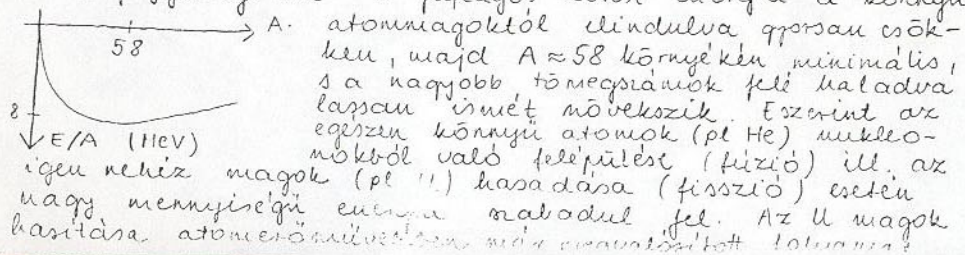 A. atommagoktól elindulva gyorsan csök-
58
ken, majd A ≈ 58 környékén minimális,
s a nagyobb tömegszámok felé haladva
8
lassan ismét növekszik. Eszerint az
E/A (MeV)
egészen könnyű atomok (pl He) nukleo-
nokból való felépülése (fúzió) ill. az
igen nehéz magok (pl U) hasadása (fisszió) esetén
nagy mennyiségű energia szabadul fel. Az U magok
hasítása atomerőművekben már megvalósított